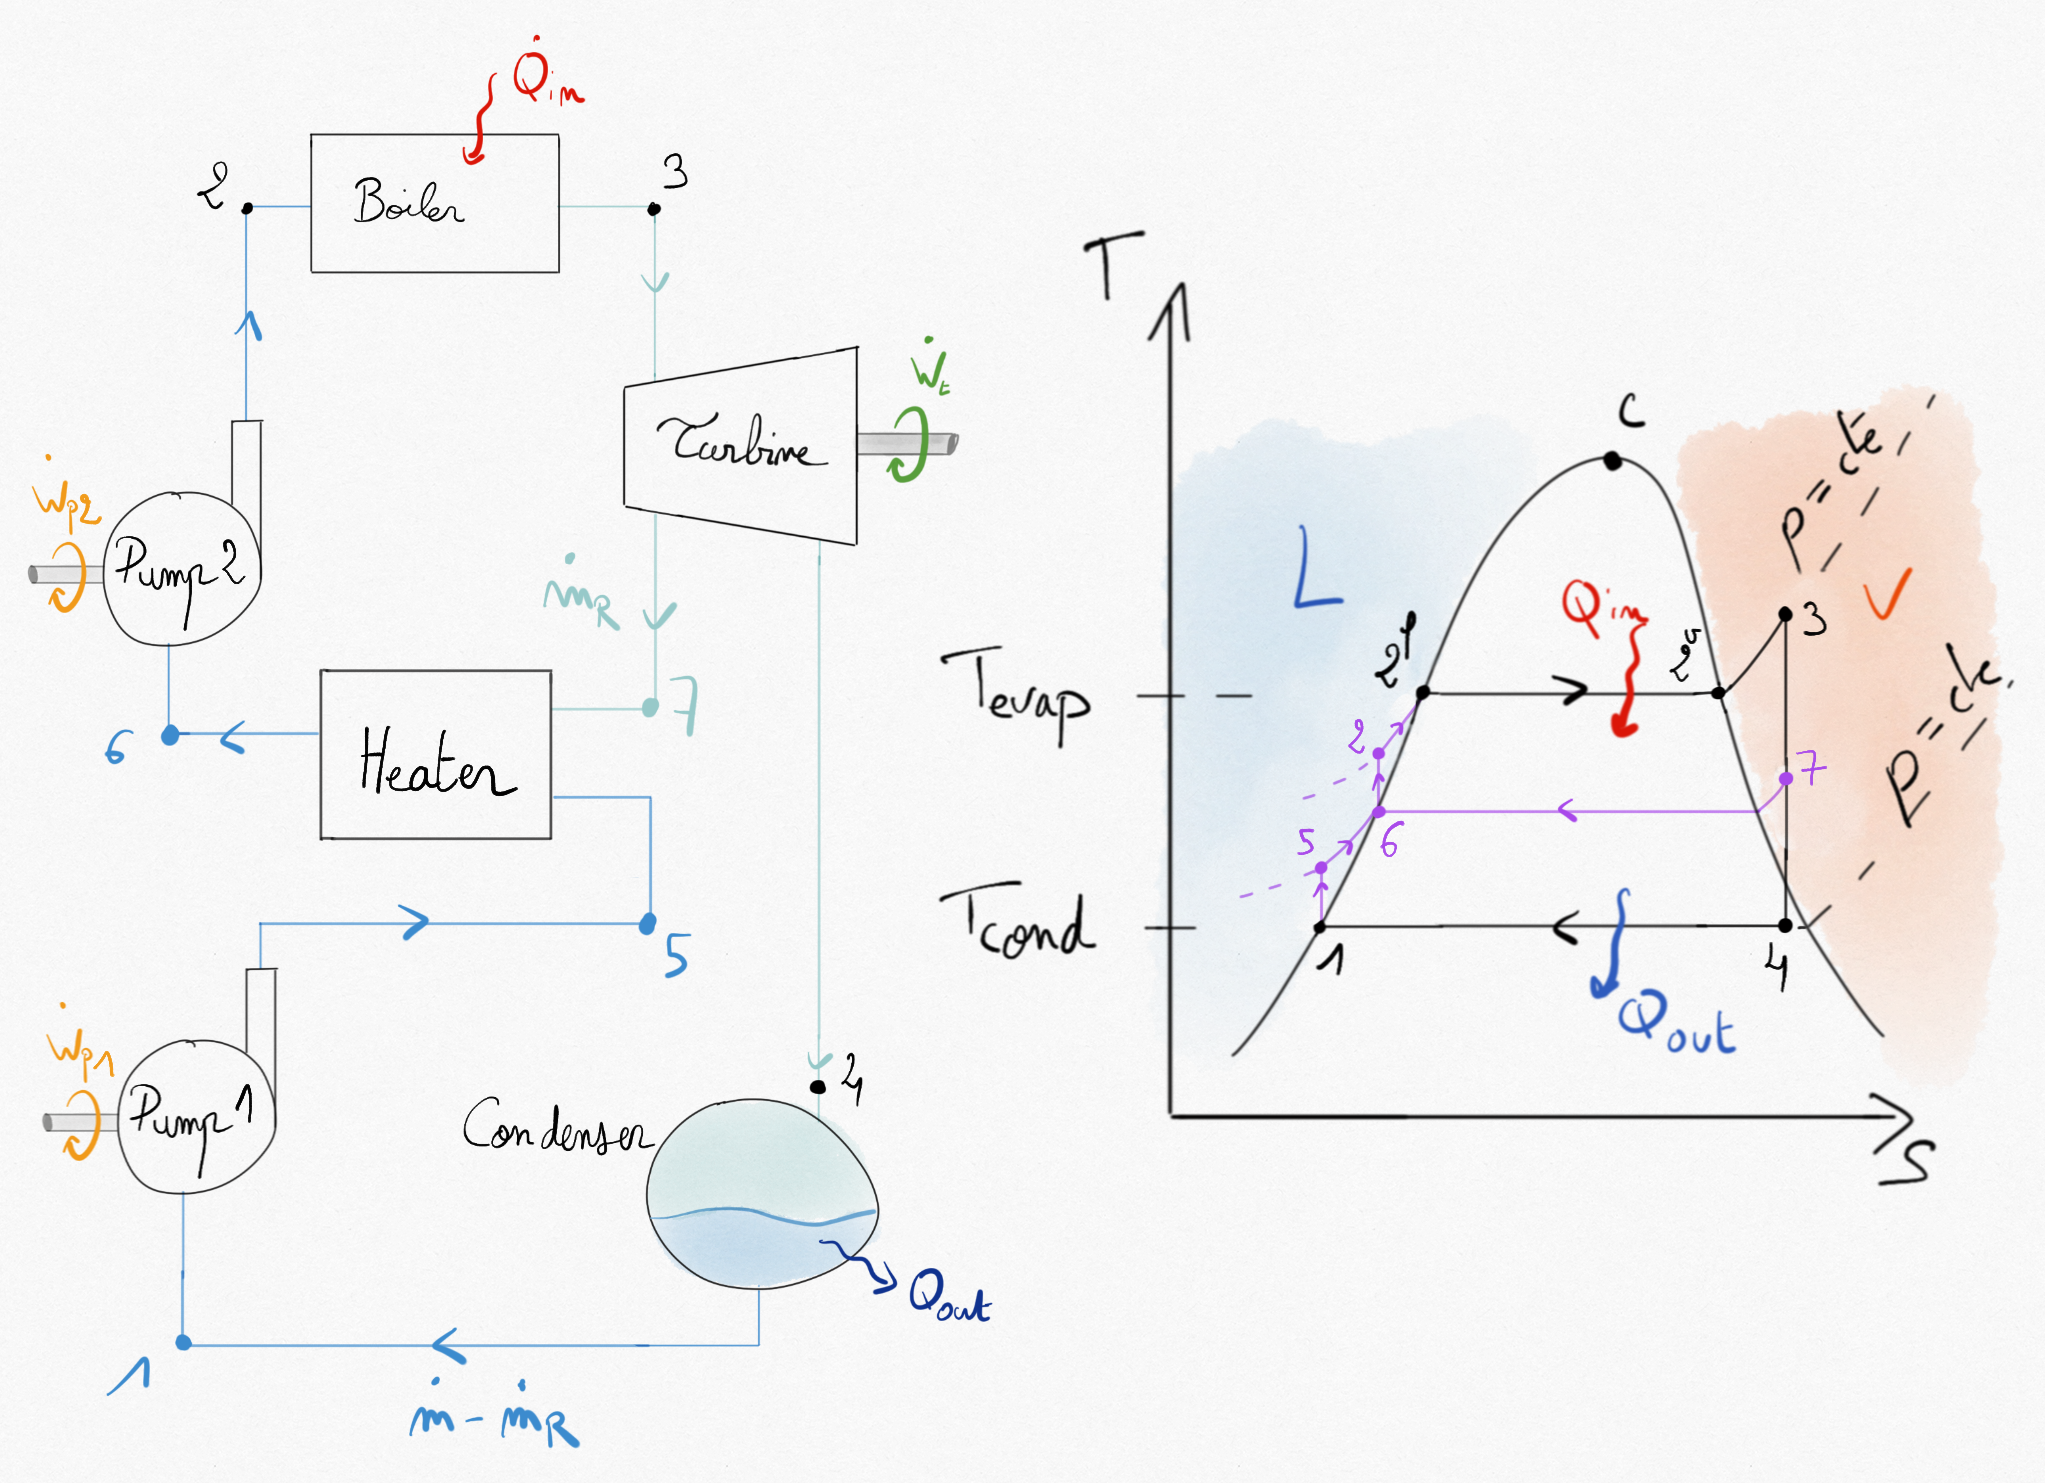 Q̇in
2
Boiler
3
Ẇt
Turbine
Ẇp2
Pump 2
ṁR
7
6
Heater
5
Ẇp1
Pump 1
4
Condenser
Qout
1
ṁ - ṁR
T
C
P = cte
L
Qin
V
3
2l
2v
Tevap
P = cte
2
7
5
6
Tcond
1
4
Qout
S